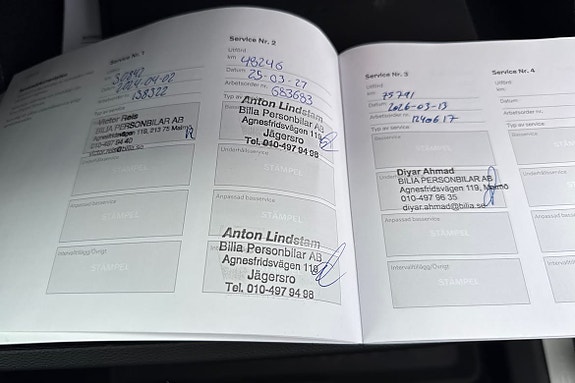 Service Nr. 1
Utförd
km:
Datum: 2024-04-02
Arbetsorder nr. 138322
Victor Reis
BILIA PERSONBILAR AB
Agnesfridsvägen 119, 213 75
010-497 94 40
STÄMPEL
Anpassad basservice
STÄMPEL
Intervalltillägg/Övrigt
STÄMPEL
Service Nr. 2
Utförd
km: 48246
Datum: 25-03-27
Arbetsorder nr. 683683
Typ av
Anton Lindstam
Bilia Personbilar AB
Agnesfridsvägen 119
Jägersro
Tel. 010-497 94 98
Underhållsservice
STÄMPEL
Anpassad basservice
STÄMPEL
Anton Lindstam
Bilia Personbilar AB
Agnesfridsvägen 119
Jägersro
Tel. 010-497 94 98
Service Nr. 3
Utförd
km: 75791
Datum: 2026-03-13
Arbetsorder nr.
Typ av service:
Basservice
STÄMPEL
Diyar Ahmad
BILIA PERSONBILAR AB
Agnesfridsvägen 119, Malmö
010-497 96 35
diyar.ahmad@bilia.se
Anpassad basservice
STÄMPEL
Intervalltillägg/Övrigt
STÄMPEL
Service Nr. 4
Utförd
km:
Datum:
Arbetsorder nr.
Typ av service:
Basservice